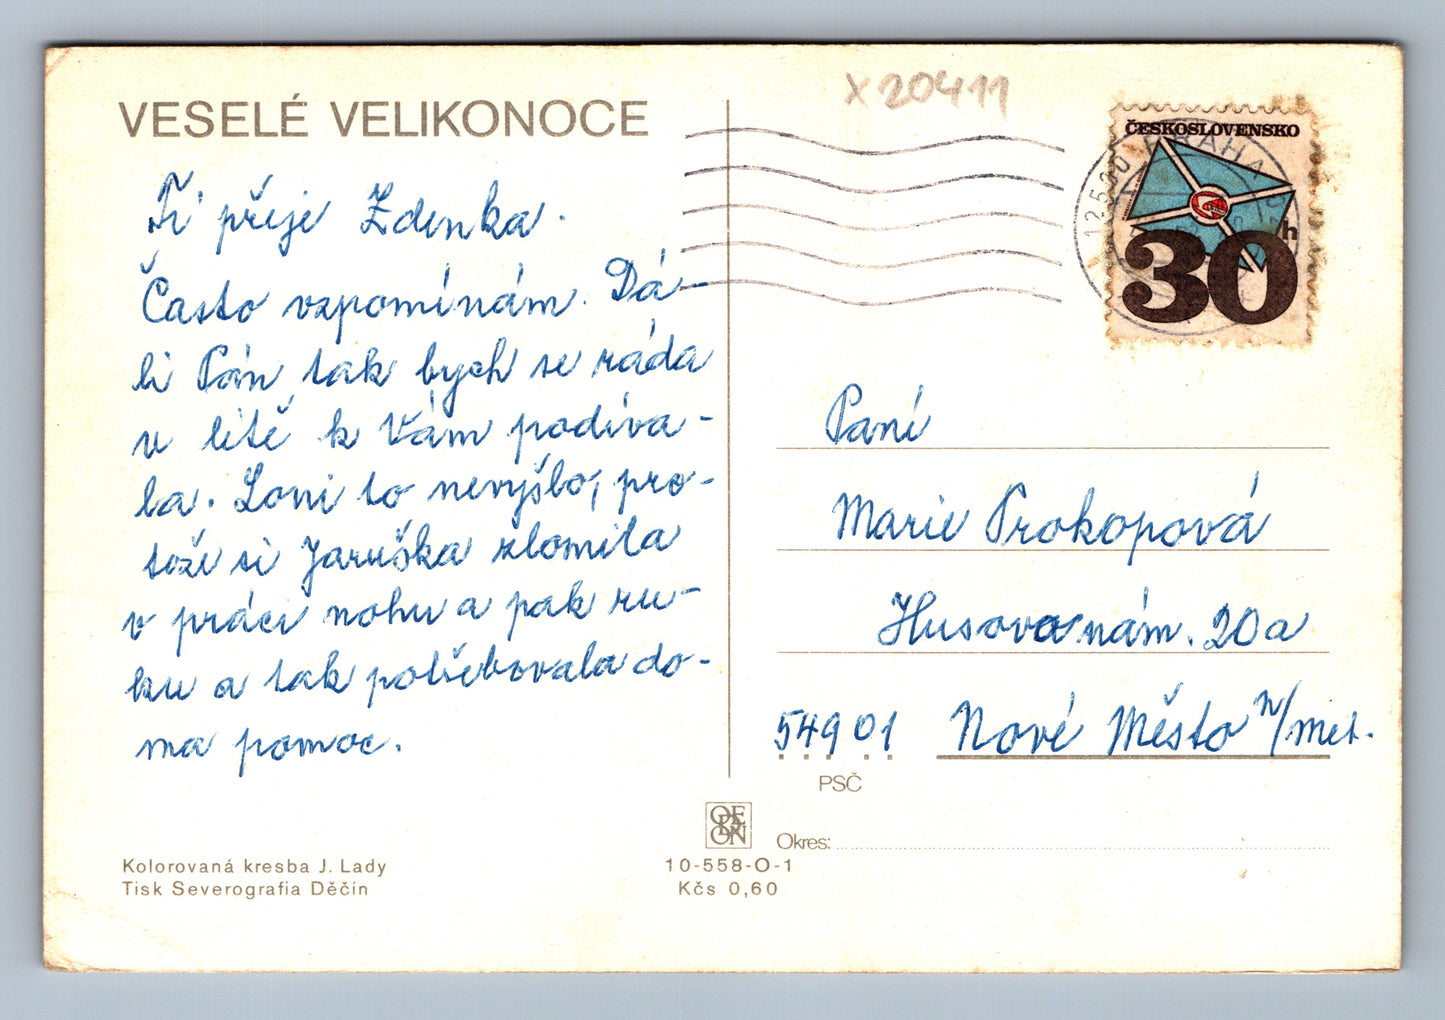 VESELÉ VELIKONOCE
Ti přeje Zdenka.
Často vzpomínám. Dá-
li Pán tak bych se ráda
v létě k Vám podíva-
la. Loni to nevyšlo, pro-
tože si Jaruška zlomila
v práci nohu a pak ru-
ku a tak potřebovala do-
ma pomoc.
Kolorovaná kresba J. Lady
Tisk Severografia Děčín
ODEON
10-558-O-1
Kčs 0,60
X20411
ČESKOSLOVENSKO
30h
12500 PRAHA
Paní
Marie Prokopová
Husovo nám. 20a
54901 Nové Město n/Met.
PSČ
Okres: